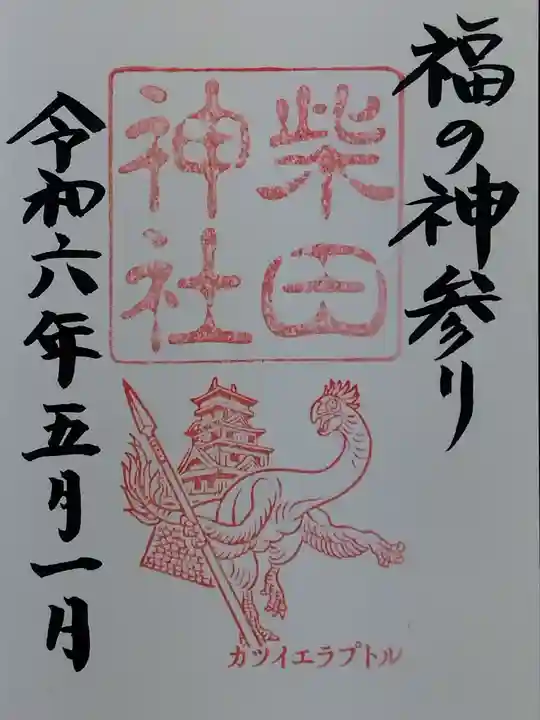 福の神参り
柴田
神社
令和六年五月一日
カツイエラプトル